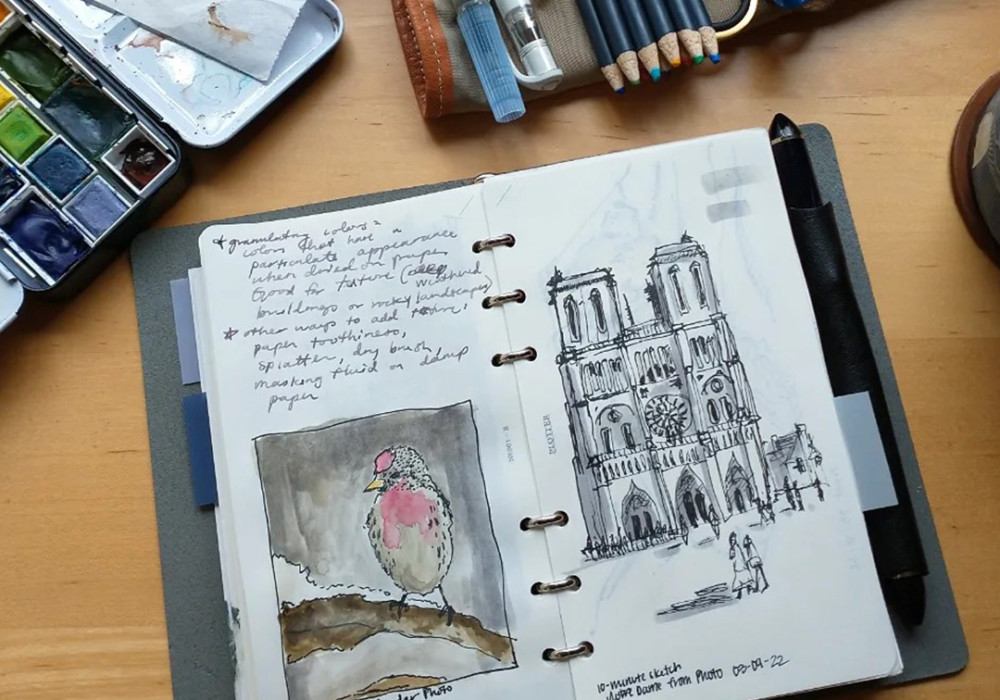 * granulating colors =
colors that have a
particulate appearance
when dried on paper
Good for texture (
weathered
buildings or rocky landscapes)
* other ways to add texture:
paper toothiness,
splatter, dry brush
masking fluid on damp
paper
Photo
BLOTTER
10-minute sketch
Notre Dame from Photo 03-09-22